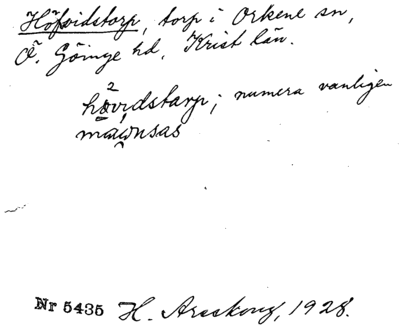 Höfvidstorp, torp i Örkene sn,
Ö. Göinge hd, Krist län.
hövidstarp; numera vanligen
magnsas
Nr 5435 H. Areskoug, 1928.